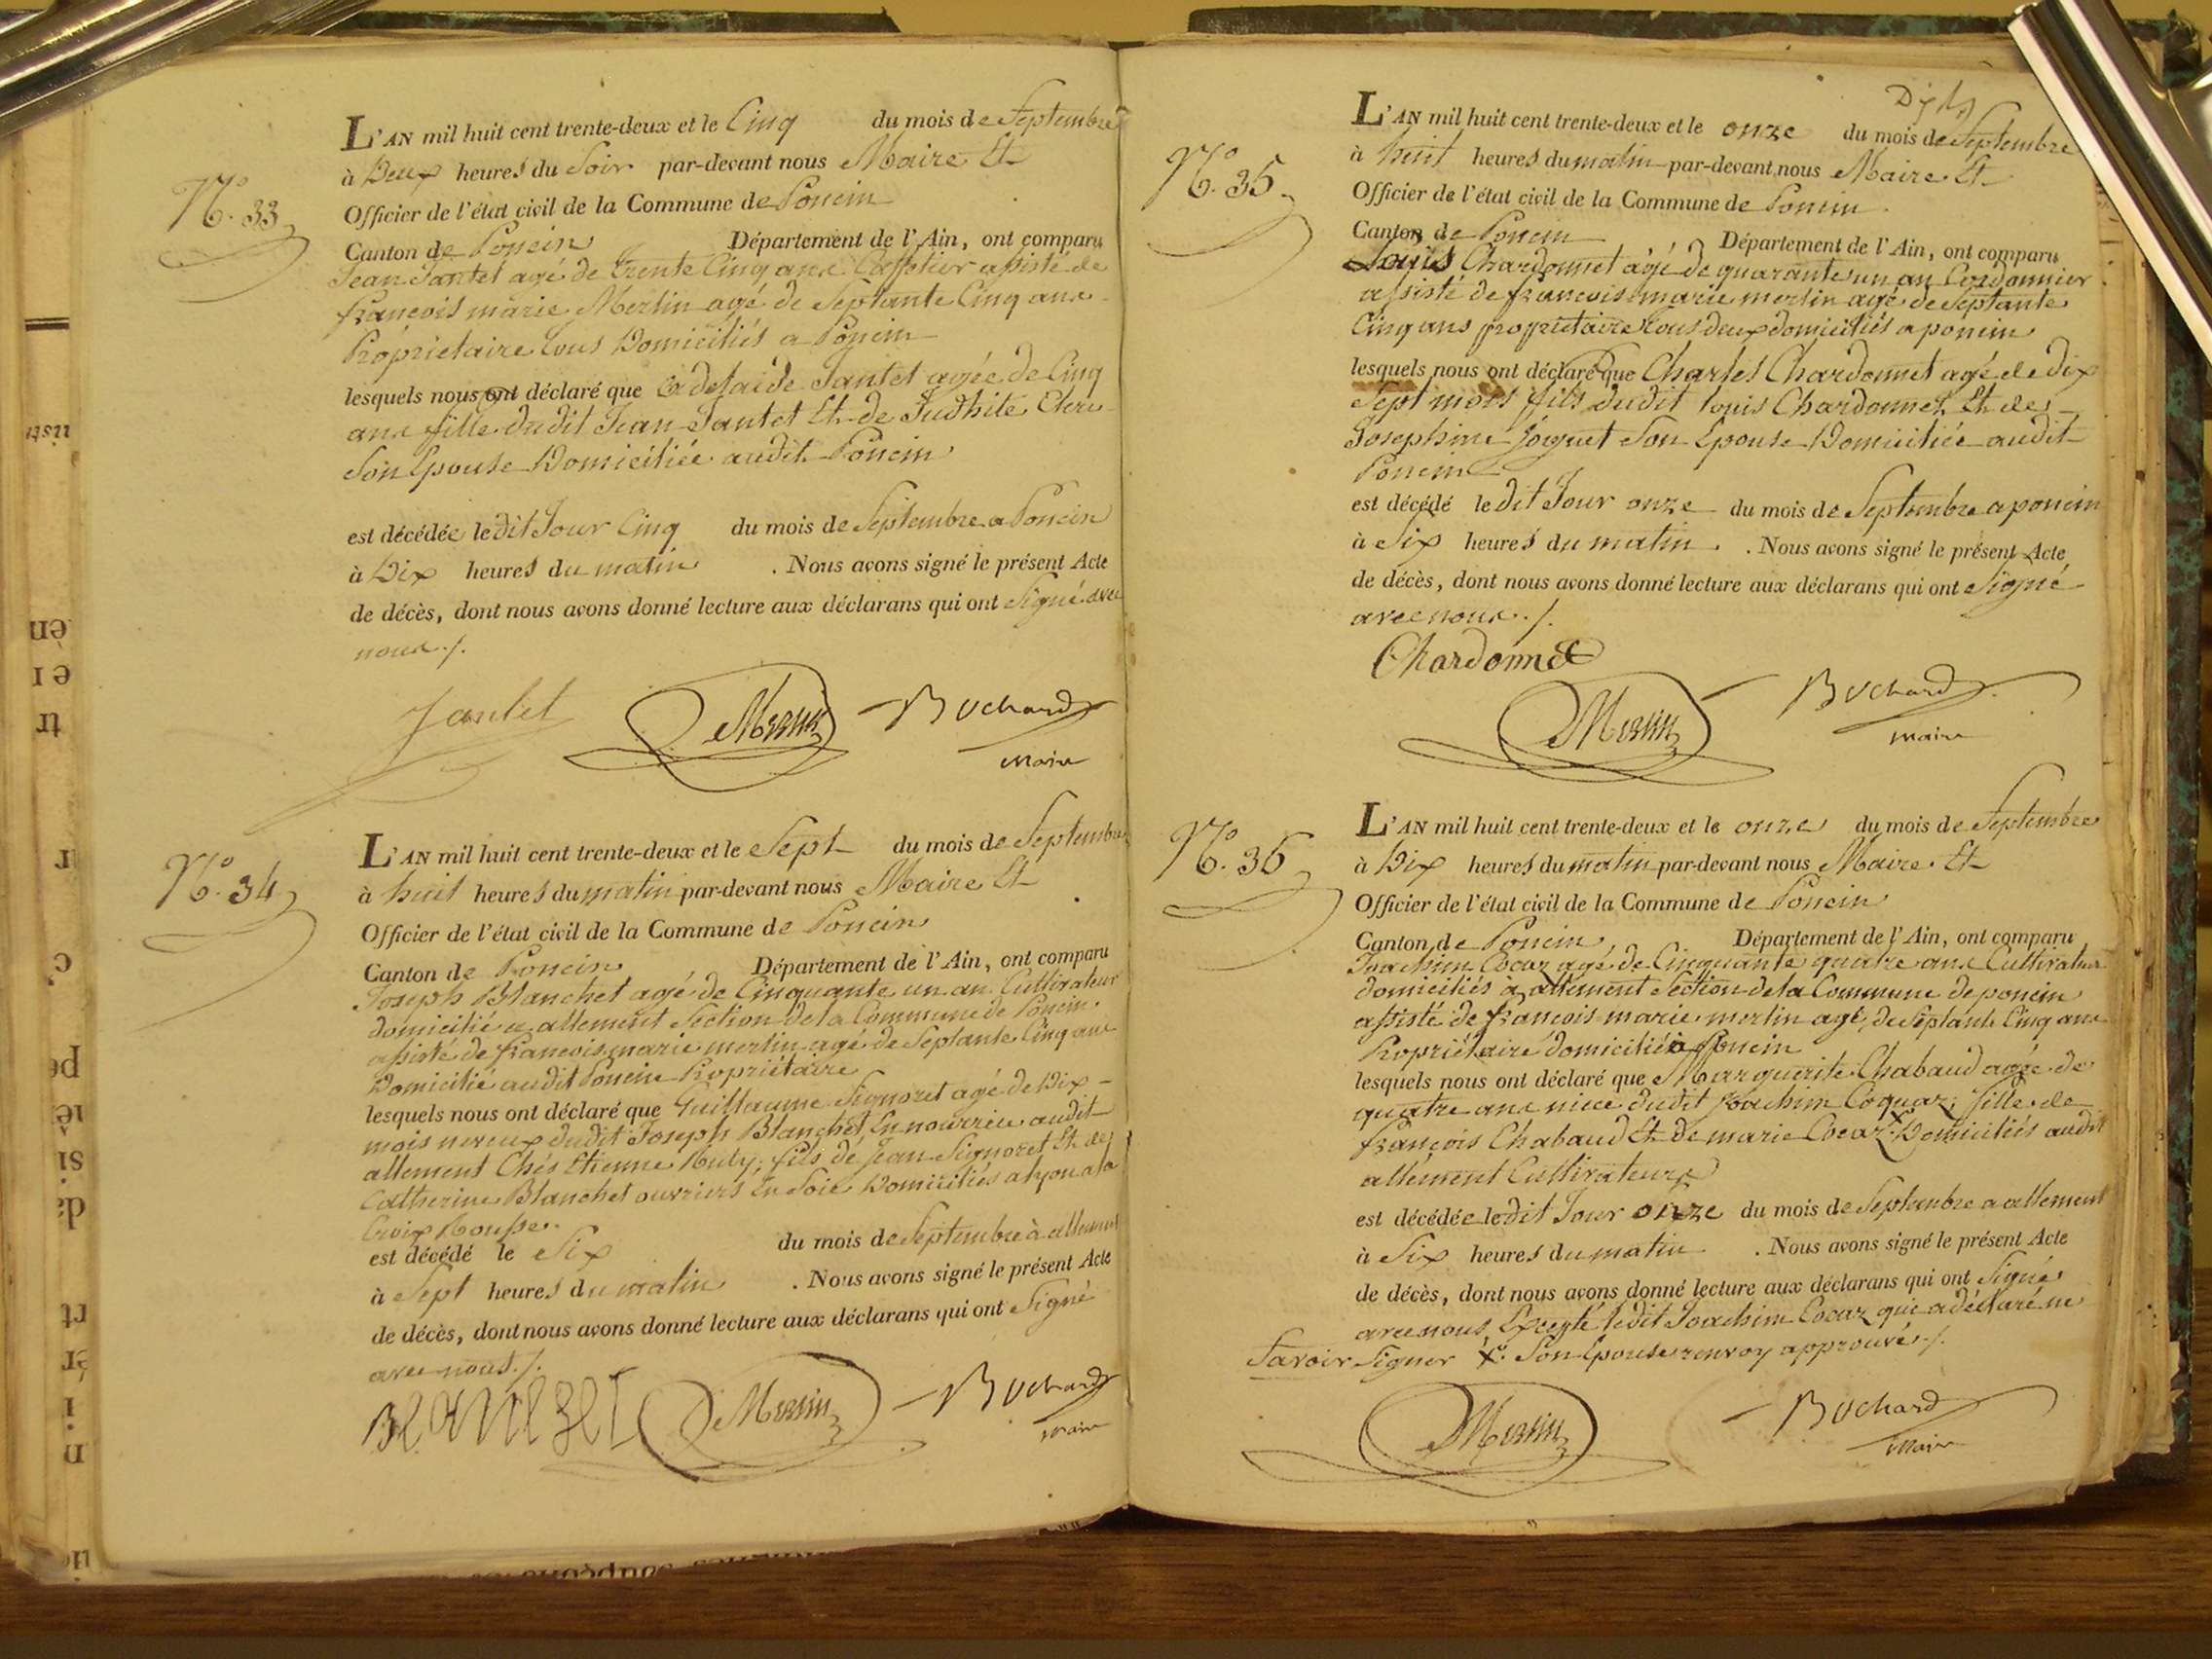 N.º 33
L'AN mil huit cent trente-deux et le Cinq du mois de Septembre
à Deux heures du Soir par-devant nous Maire Et
Officier de l'état civil de la Commune de Poncin
Canton de Poncin Département de l'Ain, ont comparu
Jean Jantet agé de trente Cinq ans assisté de
françois marie Merlin agé de Septante Cinq ans
Propriétaire tous Domiciliés a Poncin
lesquels nous ont déclaré que adelaide Jantet agée de Cinq
ans fille dudit Jean Jantet Et de Judhite
Son Epouse Domiciliée audit Poncin
est décédée le dit Jour Cinq du mois de Septembre a Poncin
à Dix heures du matin . Nous avons signé le présent Acte
de décès, dont nous avons donné lecture aux déclarans qui ont Signé avec
nous ./.
Jantet Merlin Bochard
maire
N.º 34
L'AN mil huit cent trente-deux et le Sept du mois de Septembre
à huit heures du matin par-devant nous Maire Et
Officier de l'état civil de la Commune de Poncin
Canton de Poncin Département de l'Ain, ont comparu
Joseph Blanchet agé de Cinquante un an Cultivateur
domicilié a allement Section de la Commune de Poncin
assisté de francois marie merlin agé de Septante Cinq ans
Domicilié audit Poncin Propriétaire
lesquels nous ont déclaré que Guillaume Signoret agé de Dix
mois neveux dudit Joseph Blanchet En nourrice audit
allement Chés Etienne fils de Jean Signoret Et de
Catherine Blanchet ouvriers En Soie Domiciliés a lyon a la
Croix Rousse
est décédé le Six du mois de Septembre à allement
à Sept heures du matin . Nous avons signé le présent Acte
de décès, dont nous avons donné lecture aux déclarans qui ont Signé
avec nous ./.
Blanchet Merlin Bochard
maire
N.º 35
L'AN mil huit cent trente-deux et le onze du mois de Septembre
à huit heures du matin par-devant nous Maire Et
Officier de l'état civil de la Commune de Poncin
Canton de Poncin Département de l'Ain, ont comparu
Louis Chardonnet agé de quarante un an Cordonnier
assisté de francois marie merlin agé de Septante
Cinq ans propriétaire tous deux domiciliés a poncin
lesquels nous ont déclaré que Charles Chardonnet agé de dix
Sept mois fils dudit louis Chardonnet Et de
Josephine Joguet Son Epouse Domiciliée audit
Poncin
est décédé le dit Jour onze du mois de Septembre a poncin
à Six heures du matin . Nous avons signé le présent Acte
de décès, dont nous avons donné lecture aux déclarans qui ont Signé
avec nous ./.
Chardonnet
Merlin Bochard
maire
N.º 36
L'AN mil huit cent trente-deux et le onze du mois de Septembre
à Dix heures du matin par-devant nous Maire Et
Officier de l'état civil de la Commune de Poncin
Canton de Poncin Département de l'Ain, ont comparu
Joachim Cocaz agé de Cinquante quatre ans Cultivateur
domiciliés a allement Section de la Commune de poncin
assisté de francois marie merlin agé de Septante Cinq ans
Propriétaire domicilié à Poncin
lesquels nous ont déclaré que Marguerite Chabaud agée de
quatre ans niece dudit Joachim Coquaz, fille de
françois Chabaud Et de marie Cocaz X Domiciliés audit
allement Cultivateurs
est décédée le dit Jour onze du mois de Septembre a allement
à Six heures du matin . Nous avons signé le présent Acte
de décès, dont nous avons donné lecture aux déclarans qui ont Signé
avec nous Excepté ledit Joachim Cocaz qui a déclaré ne
Savoir Signer X. Son Epouse renvoy approuvé ./.
Merlin Bochard
maire